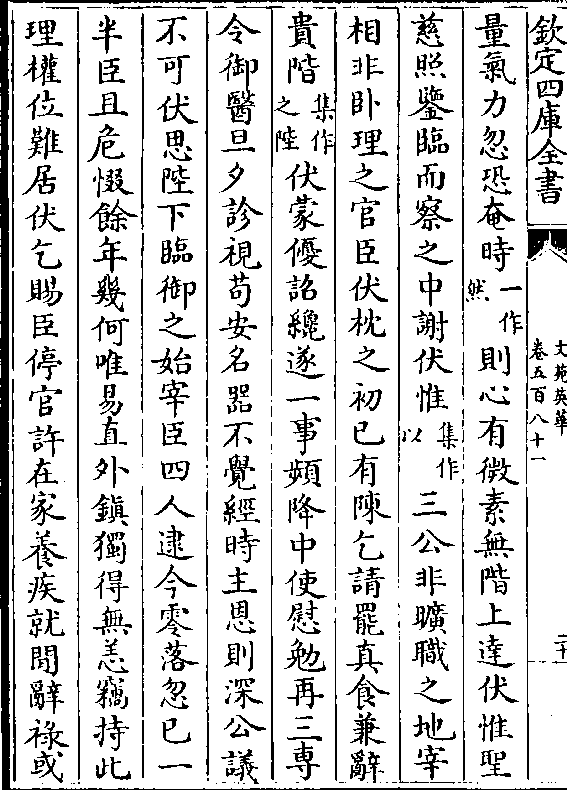 欽定四庫全書
文苑英華
卷五百八十一
二十
量氣力忽恐奄時一作然則心有微素無階上達伏惟聖
慈照鑒臨而察之中謝伏惟集作以三公非曠職之地宰
相非卧理之官臣伏枕之初已有陳乞請罷真食兼辭
貴階集作之陛伏蒙優詔纔遂一事頻降中使慰勉再三専
令御醫旦夕診視苟安名器不覺經時主恩則深公議
不可伏思陛下臨御之始宰臣四人逮今零落忽已一
半臣且危惙餘年幾何唯易直外鎮獨得無恙竊持此
理權位難居伏乞賜臣停官許在家養疾就閒辭祿或